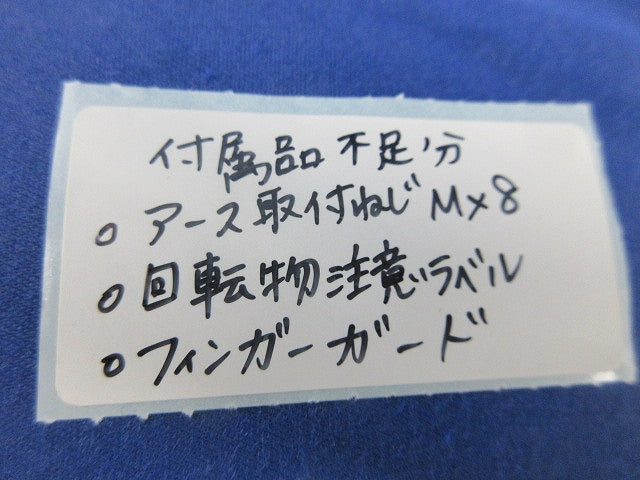 付属品不足分
○ アース取付ねじ M×8
○ 回転物注意ラベル
○ フィンガーガード